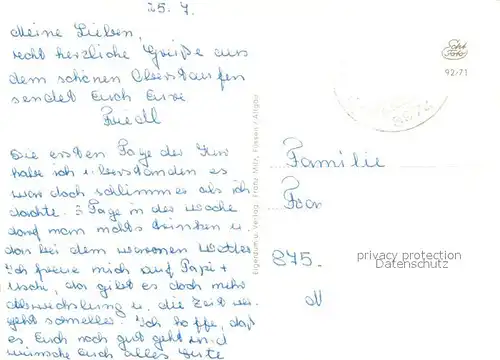 25. 7.
Meine Lieben,
recht herzliche Grüße aus
dem schönen Oberstaufen
sendet Euch Eure
Friedl
Die ersten Tage der Kur
habe ich überstanden es
war doch schlimmer als ich
dachte. 3 Tage in der Woche
darf man nichts trinken u.
das bei dem warmen Wetter
Ich freue mich auf Papi +
Uschi, da gibt es doch mehr
Abwechslung u. die Zeit ver-
geht schneller. Ich hoffe, daß
es Euch noch gut geht und
wünsche Euch alles Gute
Eigentum u. Verlag: Franz Milz, Füssen / Allgäu
Echt
Foto
92/71
Familie
875.
privacy protection
Datenschutz